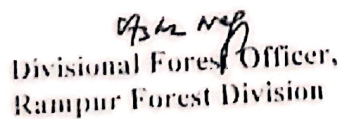 Divisional Forest Officer,
Rampur Forest Division